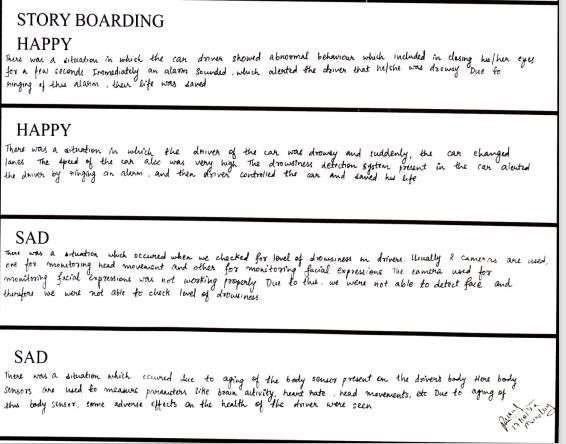 STORY BOARDING
HAPPY
There was a situation in which the car driver showed abnormal behaviour which included in closing his/her eyes
for a few seconds. Immediately an alarm sounded, which alerted the driver that he/she was drowsy Due to
ringing of this alarm, their life was saved
HAPPY
There was a situation in which the driver of the car was drowsy and suddenly, the car changed
lanes The speed of the car also was very high The drowsiness detection system present in the car alerted
the driver by ringing an alarm, and then driver controlled the car and saved his life
SAD
There was a situation which occured when we checked for level of drowsiness in drivers. Usually 2 cameras are used,
one for monitoring head movement and other for monitoring facial expressions The camera used for
monitoring facial expressions was not working properly Due to this, we were not able to detect face and
therefore, we were not able to check level of drowsiness
SAD
There was a situation which occured due to aging of the body sensor present on the drivers body Here body
sensors are used to measure parameters like brain activity, heart rate, head movements, etc Due to aging of
this body sensor, some adverse effects on the health of the driver were seen